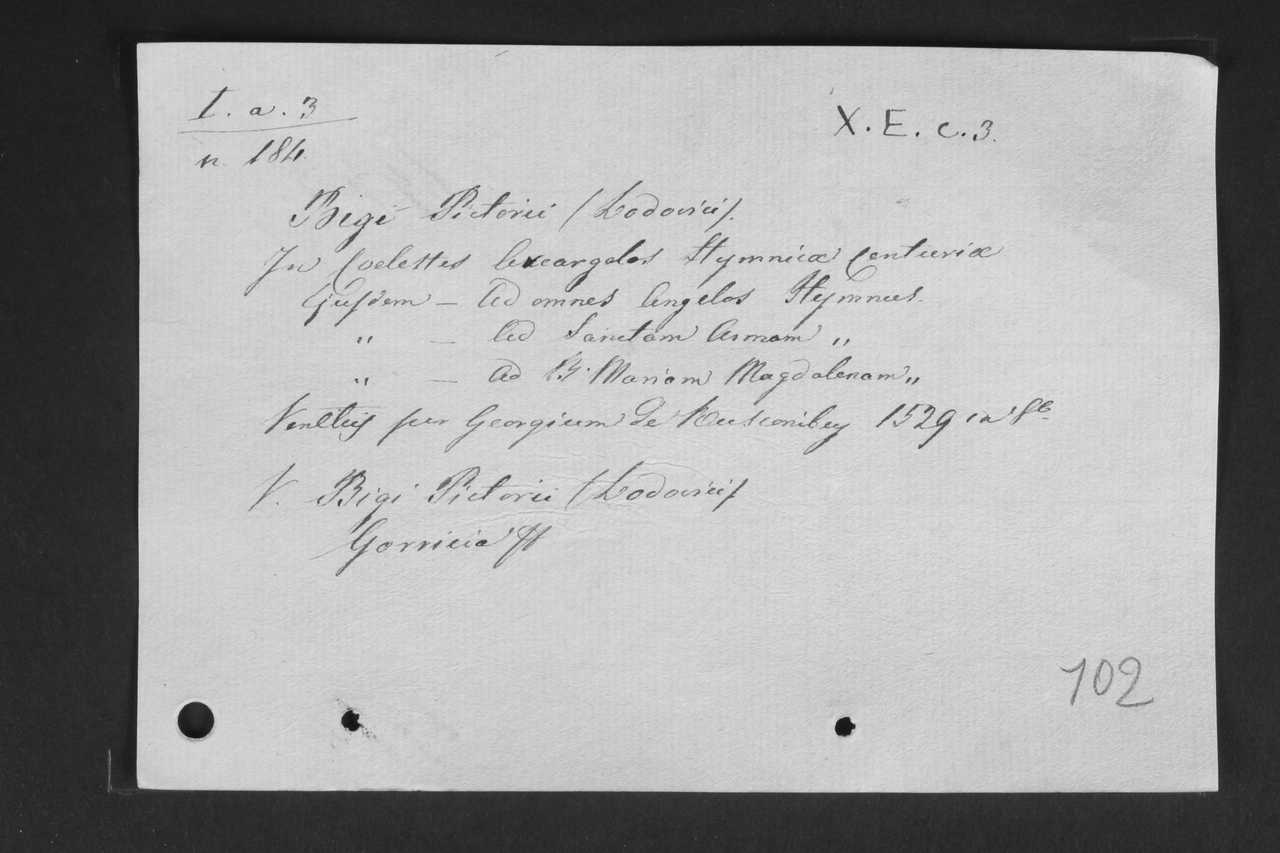 I. a. 3
X. E. c. 3.
n. 184.
Bigi Pictorii (Lodovici).
In Coelestes Axcargelos Hymnicæ Centuriæ
Ejusdem — Ad omnes Angelos Hymnus.
" — Ad Sanctam Annam "
" — Ad B. Mariam Magdalenam "
Venetiis per Georgium de Rusconibus 1529 in 8º
V. Bigi Pictorii (Lodovici)
102